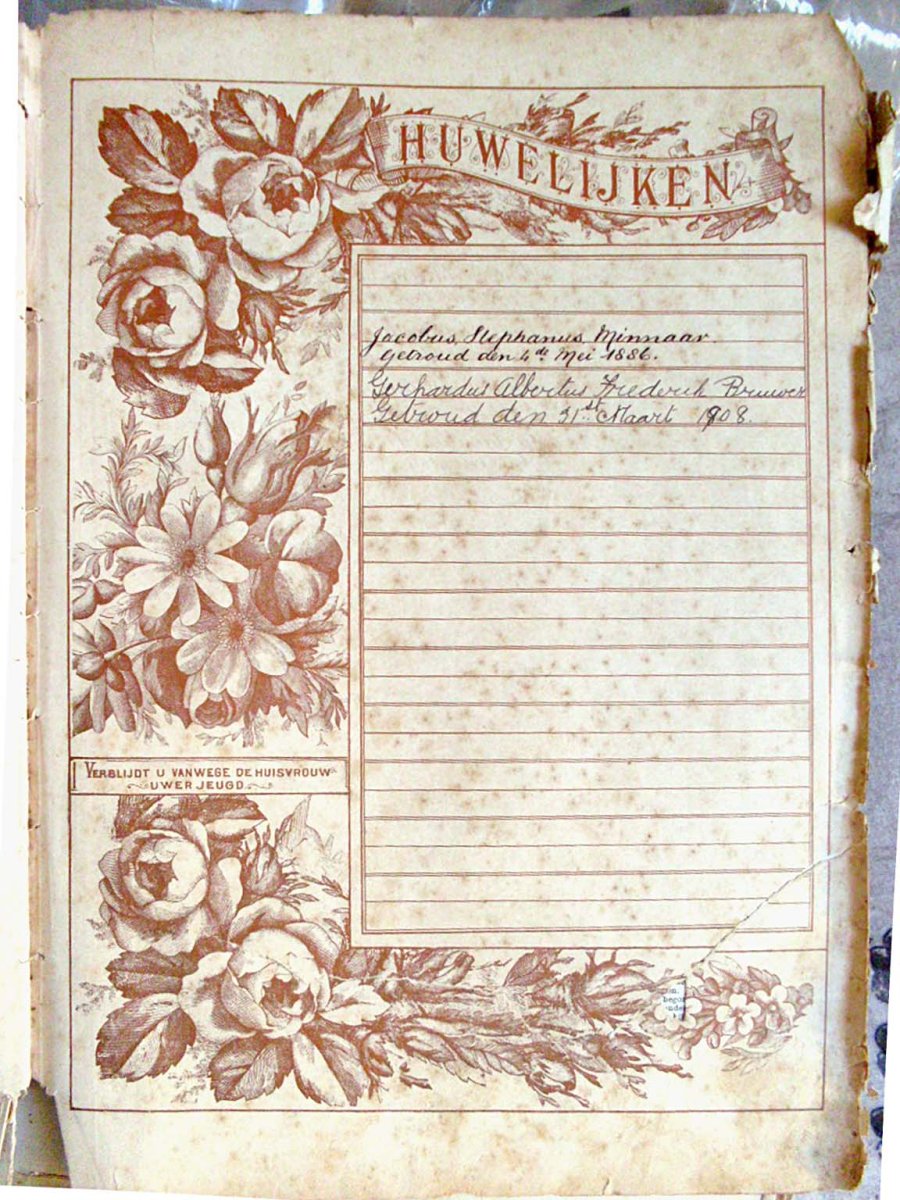 HUWELIJKEN
Jacobus Stephanus Minnaar.
Getroud den 4de Mei 1886.
Gerhardus Albertus Frederik Bruwer
Getroud den 31st Maart 1908.
VERBLIJDT U VANWEGE DE HUISVROUW
UWER JEUGD.
en.
begon
nde